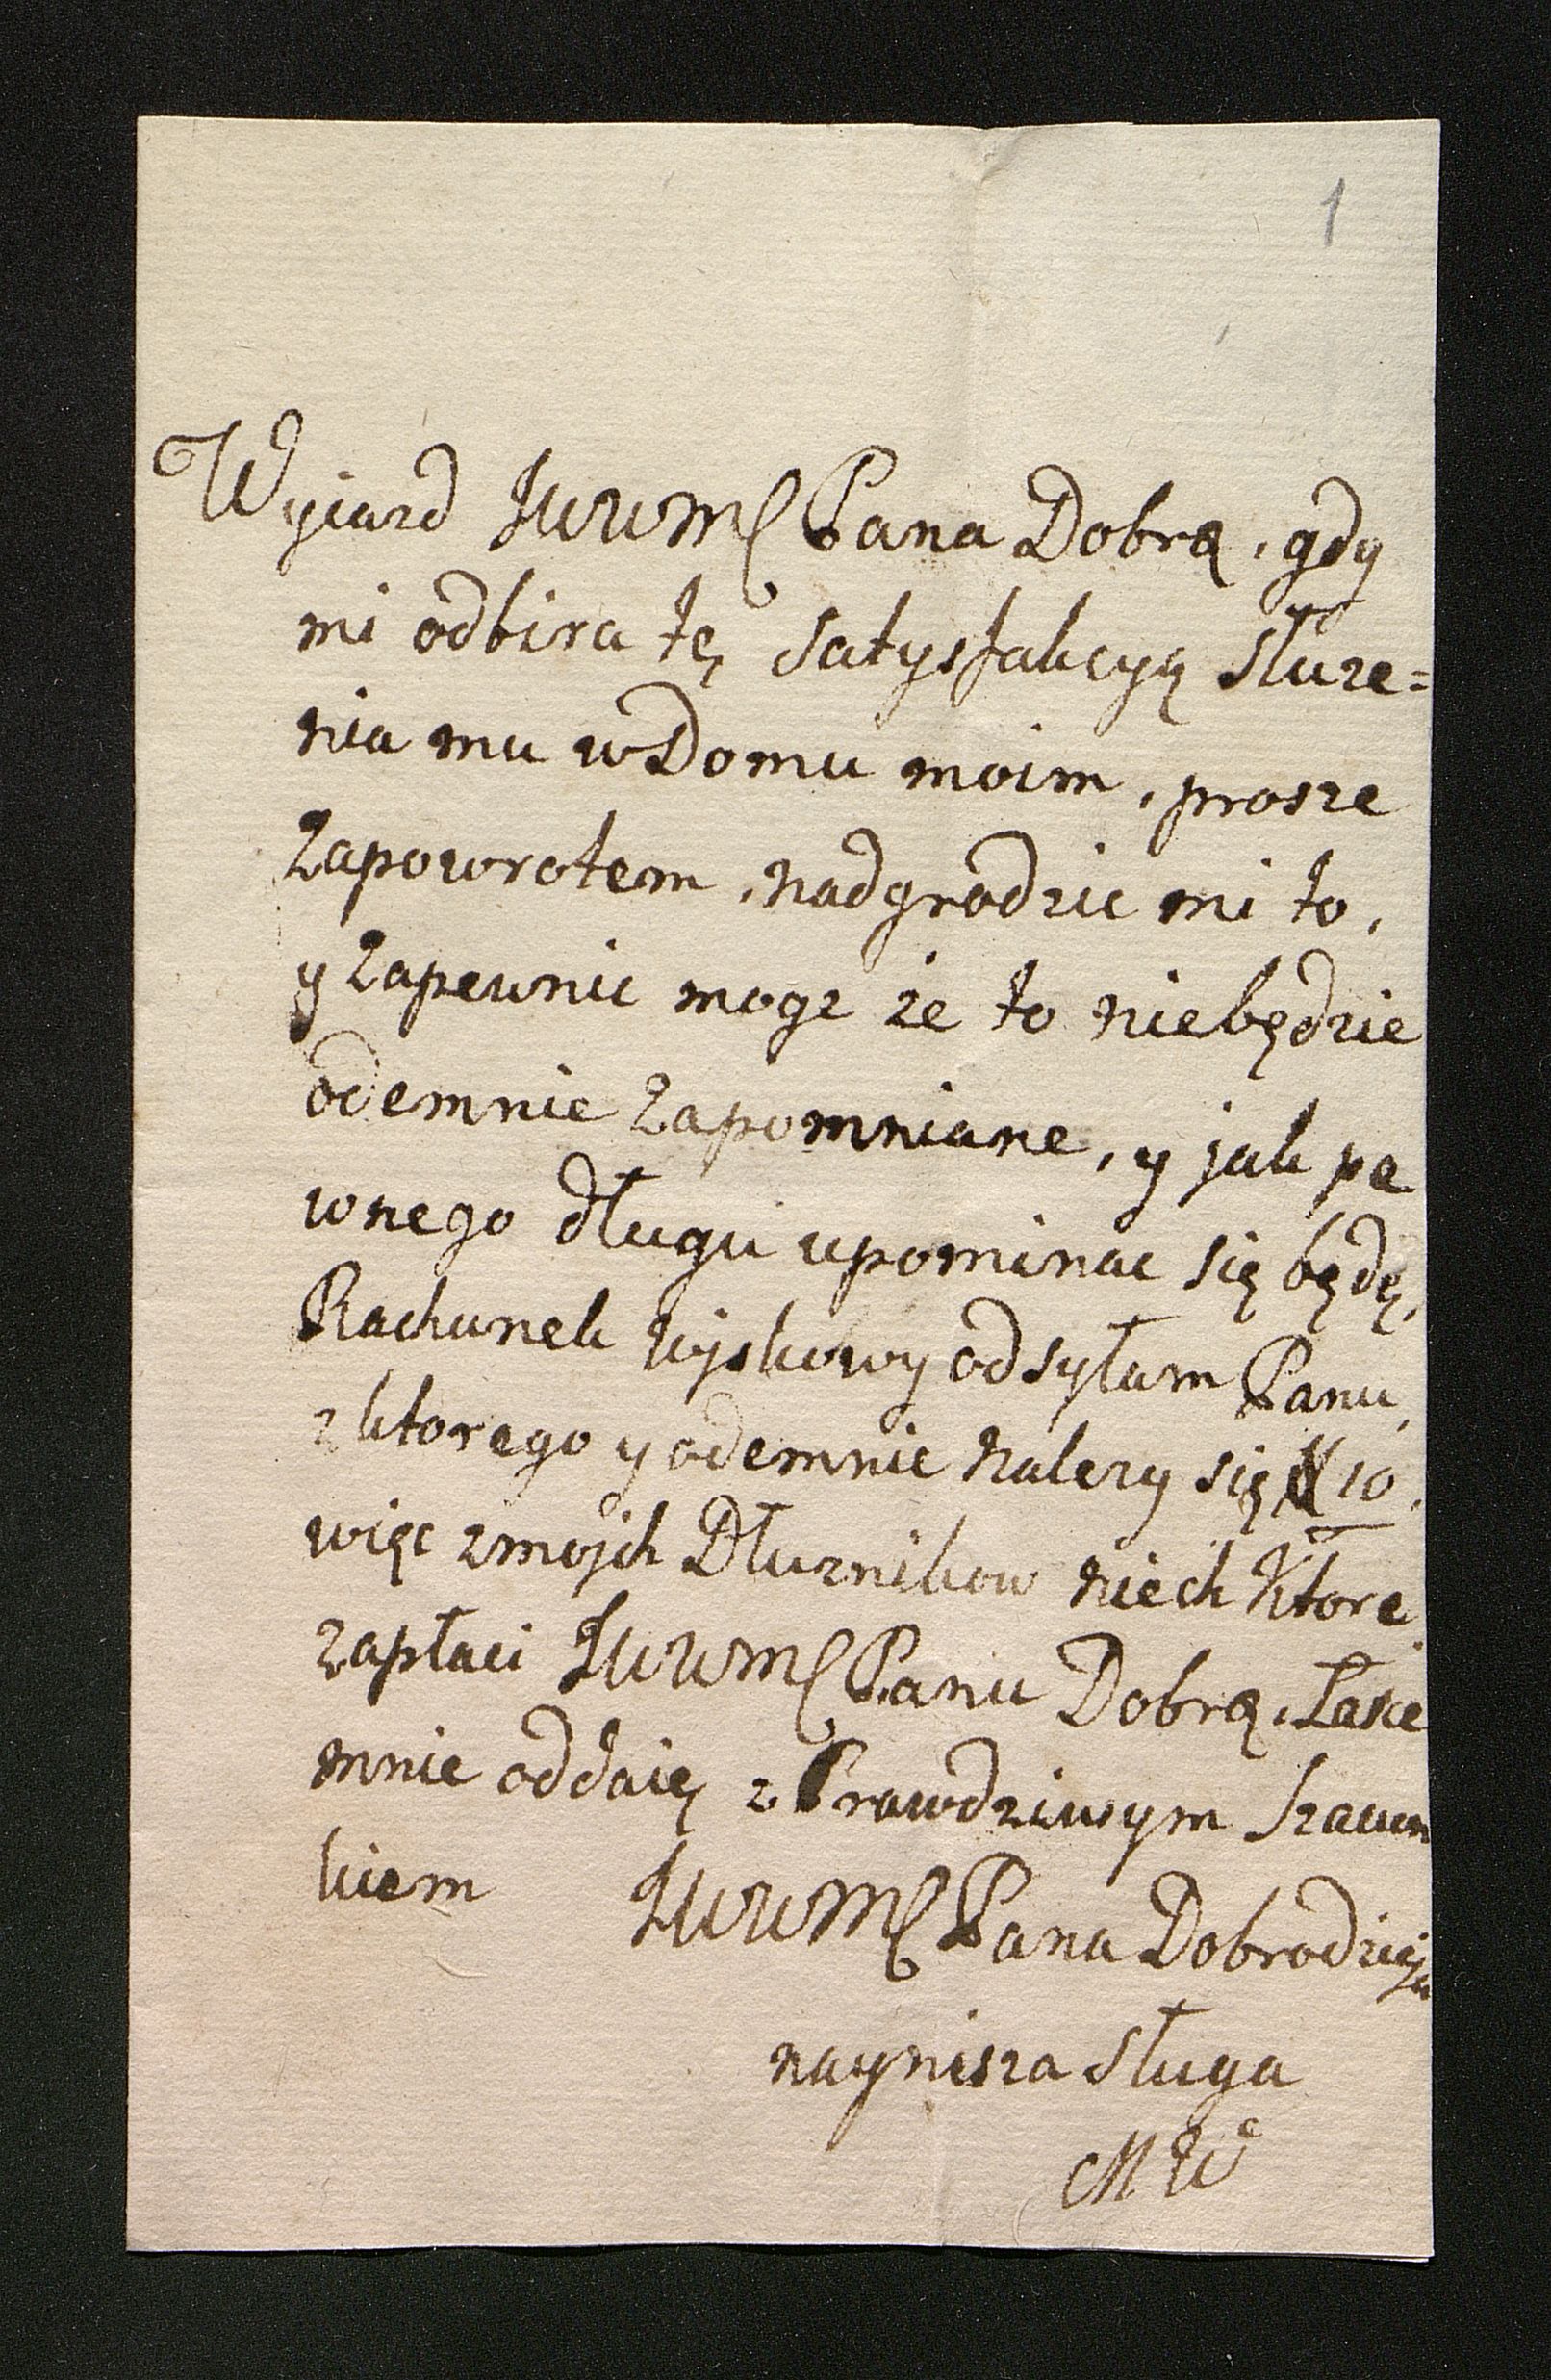 1
Wyiazd JWWMC Pana Dobrą, gdy
mi odbira tę Satysfakcyą Słuze=
nia mu w Domu moim, prosze
Zapowrotem, nadgrodzic mi to,
y Zapewnic moge że to niebędzie
odemnie Zapomniane, y jak pe
wnego długu upominac się będę,
Rachunek odsyłam Panu,
z ktorego y odemnie nalezy się # 10,
więc z mojch Dłuznikow niech Ktore
zapłaci JWWMC Panu Dobrą, Łasce
mnie oddaię z Prawdziwym Szacun
kiem JWWMC Pana Dobrodzieja
naynisza Sługa
MW